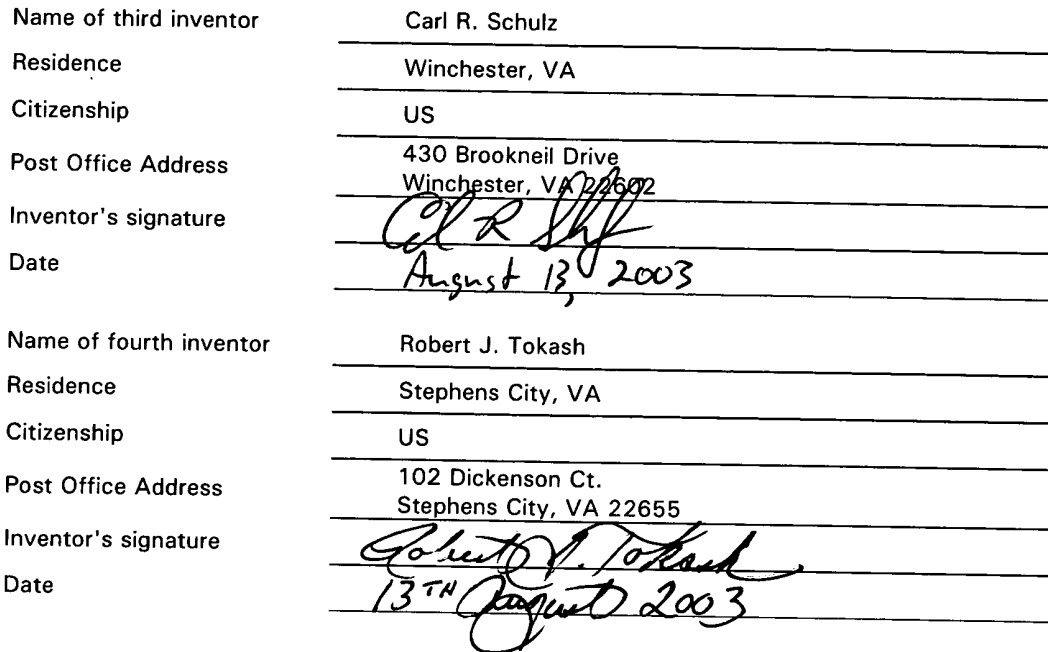 Name of third inventor Carl R. Schulz
Residence Winchester, VA
Citizenship US
Post Office Address 430 Brookneil Drive
Winchester, VA 22602
Inventor's signature
Date August 13, 2003
Name of fourth inventor Robert J. Tokash
Residence Stephens City, VA
Citizenship US
Post Office Address 102 Dickenson Ct.
Stephens City, VA 22655
Inventor's signature Robert J. Tokash
Date 13TH August 2003